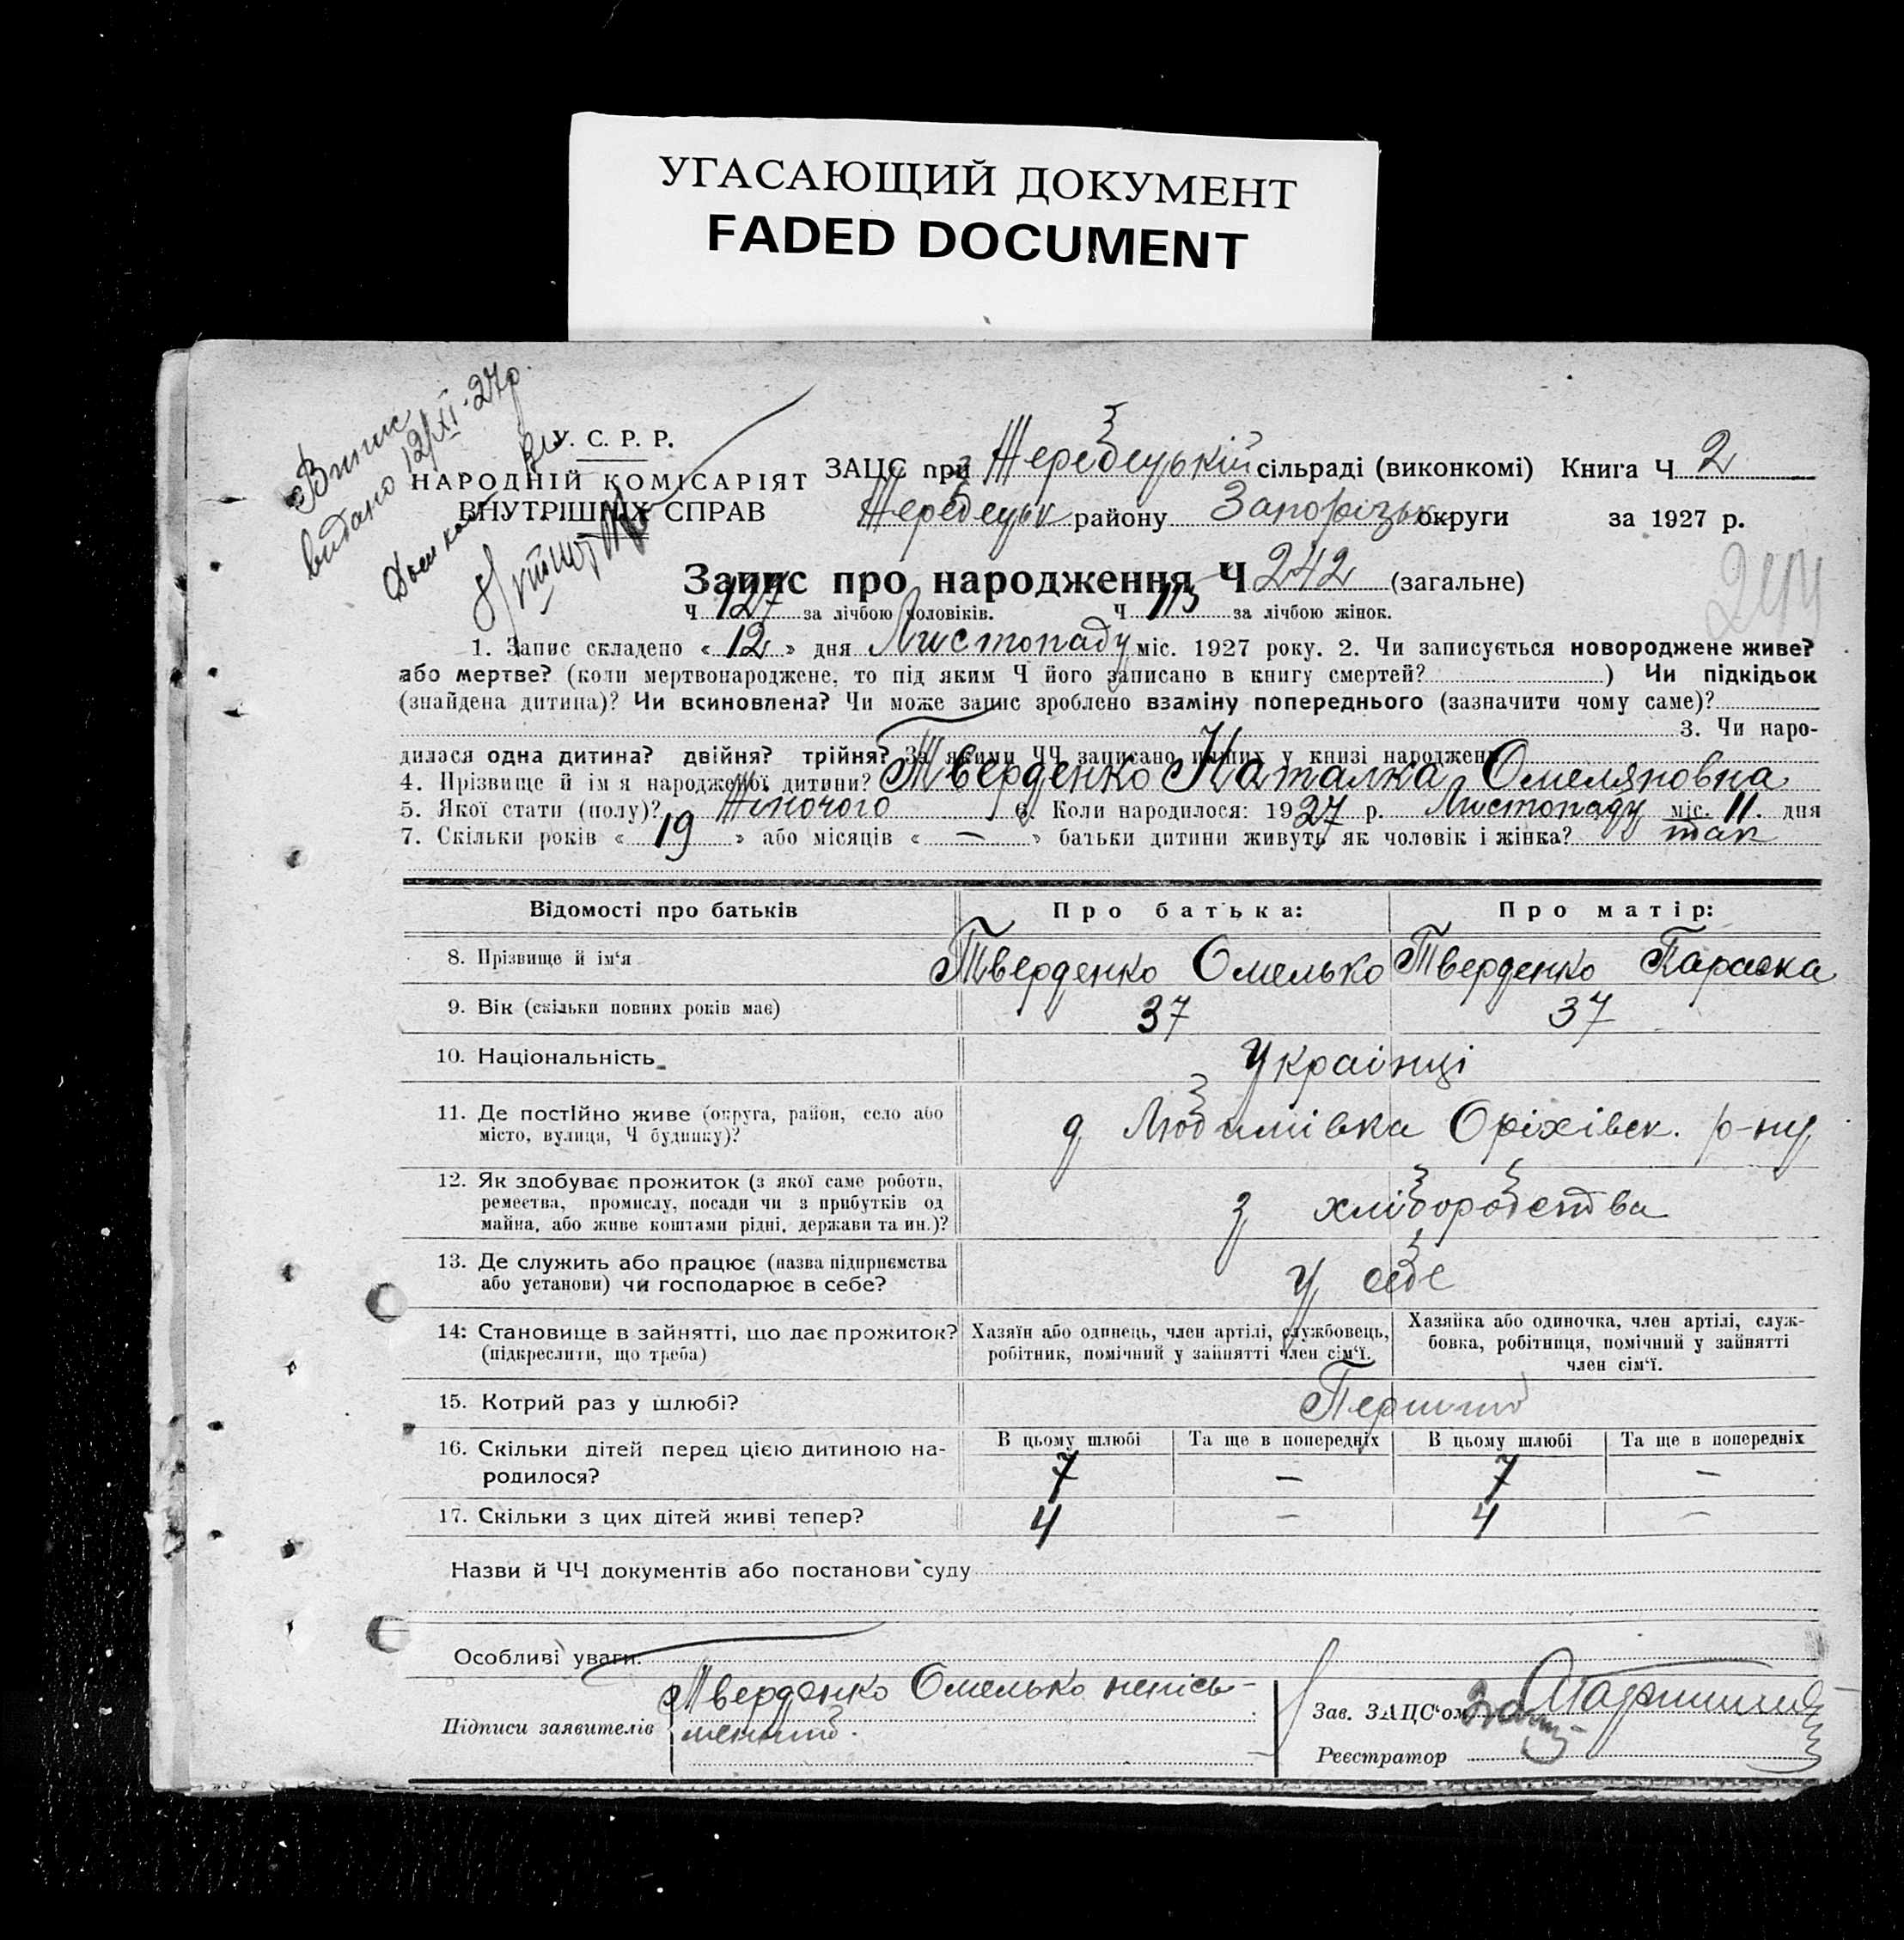 УГАСАЮЩИЙ ДОКУМЕНТ
FADED DOCUMENT
Випис
видано 12/XI-27р.
У. С. Р. Р.
НАРОДНІЙ КОМІСАРІЯТ
ВНУТРІШНІХ СПРАВ
ЗАЦС при Жеребецькій сільраді (виконкомі) Книга Ч 2
Жеребецьк району Запорізьк округи за 1927 р.
244
Запис про народження Ч 242 (загальне)
Ч 127 за лічбою чоловіків. Ч 115 за лічбою жінок.
1. Запис складено « 12 » дня Листопаду міс. 1927 року. 2. Чи записується новороджене живе?
або мертве? (коли мертвонароджене, то під яким Ч його записано в книгу смертей? ) Чи підкідьок
(знайдена дитина)? Чи всиновлена? Чи може запис зроблено взаміну попереднього (зазначити чому саме)?
3. Чи наро-
дилася одна дитина? двійня? трійня? За якими ЧЧ записано инших у книзі народжень
4. Прізвище й ім я народженої дитини? Тверденко Наталка Омеляновна
5. Якої стати (полу)? Жіночого 6. Коли народилося: 1927 р. Листопаду міс. 11. дня
7. Скільки років « 19 » або місяців « — » батьки дитини живуть як чоловік і жінка? так
Відомості про батьків Про батька: Про матір:
8. Прізвище й ім‘я Тверденко Омелько Тверденко Параска
9. Вік (скільки повних років має) 37 37
10. Національність Украінці
11. Де постійно живе (округа, район, село або
місто, вулиця, Ч будинку)? д Любимівка Оріхівск. р-ну
12. Як здобуває прожиток (з якої саме роботи,
ремества, промислу, посади чи з прибутків од
майна, або живе коштами рідні, держави та ин.)? з хліборобства
13. Де служить або працює (назва підприємства
або установи) чи господарює в себе? у себе
14: Становище в зайнятті, що дає прожиток?
(підкреслити, що треба)
Хазяїн або одинець, член артілі, службовець,
робітник, помічний у зайнятті член сім‘ї.
Хазяйка або одиночка, член артілі, служ-
бовка, робітниця, помічний у зайнятті
член сім‘ї.
15. Котрий раз у шлюбі? Перший
16. Скільки дітей перед цією дитиною на-
родилося?
В цьому шлюбі Та ще в попередніх В цьому шлюбі Та ще в попередніх
7 — 7 —
17. Скільки з цих дітей живі тепер? 4 — 4 —
Назви й ЧЧ документів або постанови суду
Особливі уваги:
Підписи заявителів Тверденко Омелько непісь-
менний.
Зав. ЗАЦС‘ом
Реєстратор